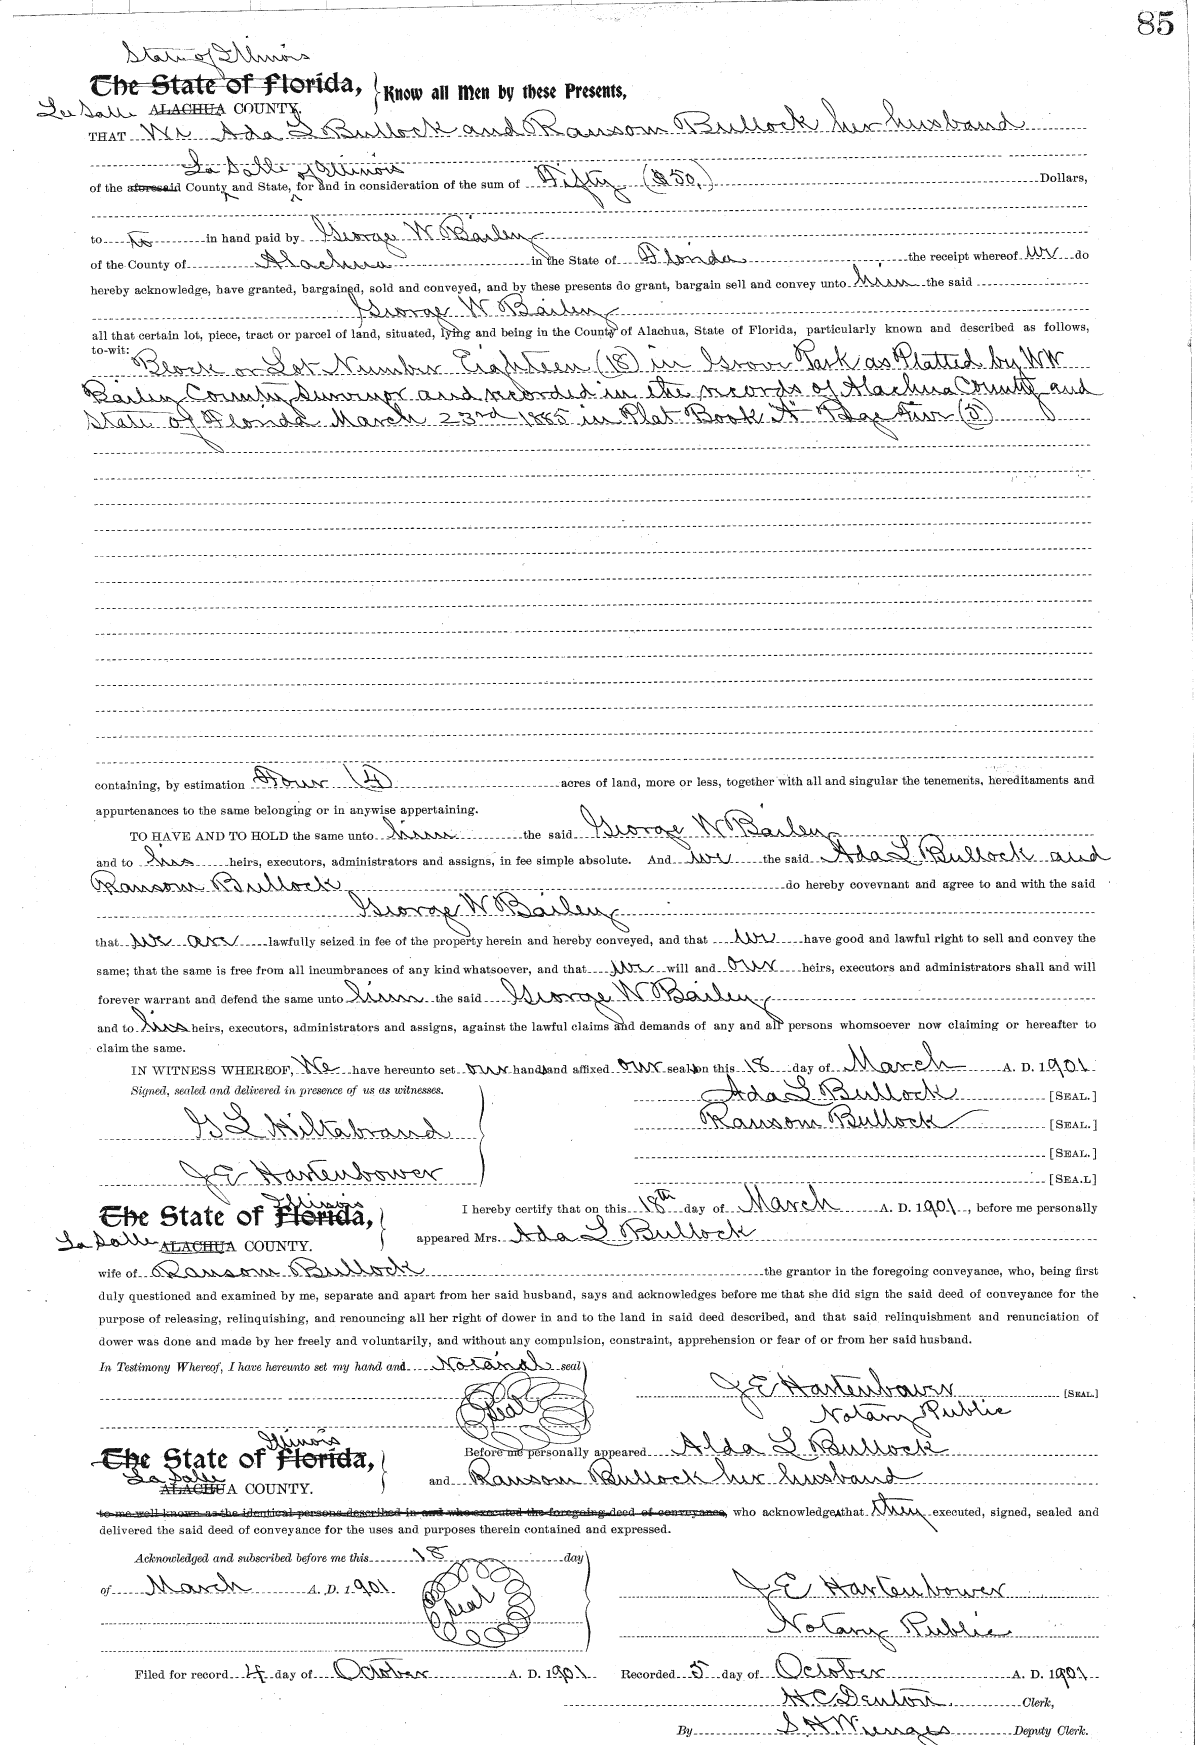 85
State of Illinois
The State of Florida, Know all Men by these Presents,
La Salle ALACHUA COUNTY.
THAT We Ada L Bullock and Ransom Bullock her husband
La Salle of Illinois
of the aforesaid County and State, for and in consideration of the sum of Fifty ($50.) Dollars,
to to in hand paid by George W Bailey
of the County of Alachua in the State of Florida the receipt whereof we do
hereby acknowledge, have granted, bargained, sold and conveyed, and by these presents do grant, bargain sell and convey unto him the said
George W Bailey
all that certain lot, piece, tract or parcel of land, situated, lying and being in the County of Alachua, State of Florida, particularly known and described as follows,
to-wit: Block or Lot Number Eighteen (18) in Grove Park as Platted by W W
Bailey County Surveyor and recorded in the records of Alachua County and
State of Florida March 23rd 1885 in Plat Book "A" Page Five (5)
containing, by estimation Four (4) acres of land, more or less, together with all and singular the tenements, hereditaments and
appurtenances to the same belonging or in anywise appertaining.
TO HAVE AND TO HOLD the same unto him the said George W Bailey
and to his heirs, executors, administrators and assigns, in fee simple absolute. And we the said Ada L Bullock and
Ransom Bullock do hereby covevnant and agree to and with the said
George W Bailey
that we are lawfully seized in fee of the property herein and hereby conveyed, and that we have good and lawful right to sell and convey the
same; that the same is free from all incumbrances of any kind whatsoever, and that we will and our heirs, executors and administrators shall and will
forever warrant and defend the same unto him the said George W Bailey
and to his heirs, executors, administrators and assigns, against the lawful claims and demands of any and all persons whomsoever now claiming or hereafter to
claim the same.
IN WITNESS WHEREOF, We have hereunto set our hands and affixed our seals on this 18 day of March A. D. 1901
Signed, sealed and delivered in presence of us as witnesses. Ada L Bullock [SEAL.]
G L Hiltabrand Ransom Bullock [SEAL.]
[SEAL.]
J E Hartenbower [SEA.L]
Illinois
The State of Florida, I hereby certify that on this 18th day of March A. D. 1901, before me personally
La Salle ALACHUA COUNTY. appeared Mrs. Ada L Bullock
wife of Ransom Bullock the grantor in the foregoing conveyance, who, being first
duly questioned and examined by me, separate and apart from her said husband, says and acknowledges before me that she did sign the said deed of conveyance for the
purpose of releasing, relinquishing, and renouncing all her right of dower in and to the land in said deed described, and that said relinquishment and renunciation of
dower was done and made by her freely and voluntarily, and without any compulsion, constraint, apprehension or fear of or from her said husband.
In Testimony Whereof, I have hereunto set my hand and Notarial seal
Seal J E Hartenbower [SEAL.]
Notary Public
Illinois
The State of Florida, Before me personally appeared Alda L Bullock
La Salle
ALACHUA COUNTY. and Ransom Bullock her husband
to me well known as the identical persons described in and who executed the foregoing deed of conveyance, who acknowledge that they executed, signed, sealed and
delivered the said deed of conveyance for the uses and purposes therein contained and expressed.
Acknowledged and subscribed before me this 18 day
of March A. D. 1901 Seal J E Hartenbower
Notary Public
Filed for record 4 day of October A. D. 1901 Recorded 5 day of October A. D. 1901
H. C. Denton Clerk,
By S H Wienges Deputy Clerk.